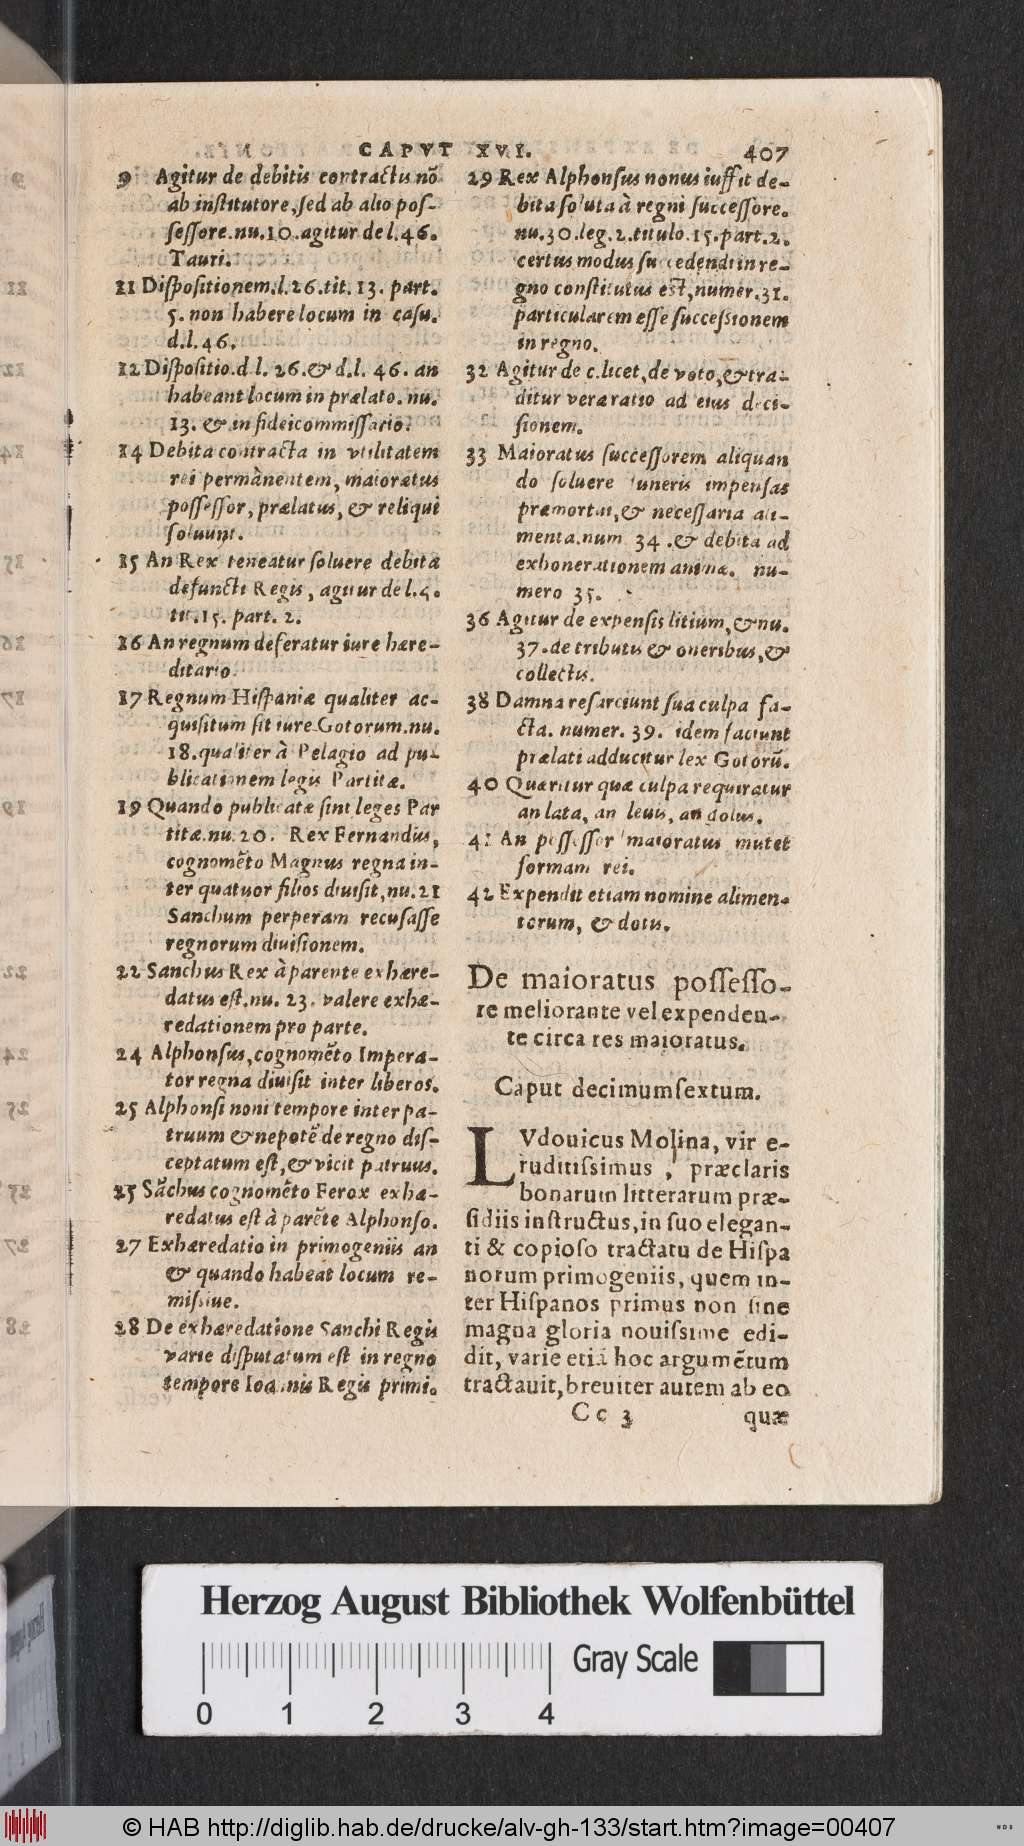 CAPVT XVI. 407
9 Agitur de debitis contractis nō
ab institutore, sed ab alio pos-
sessore. nu. 10. agitur de l. 46.
Tauri.
11 Dispositionem. l. 26. tit. 13. part.
5. non habere locum in casu.
d. l. 46.
12 Dispositio. d. l. 26. & d. l. 46. an
habeant locum in prælato. nu.
13. & in fideicommissario.
14 Debita contracta in vtilitatem
rei permànentem, maioratus
possessor, prælatus, & reliqui
soluunt.
15 An Rex teneatur soluere debita
defuncti Regis, agitur de l. 4.
tit. 15. part. 2.
16 An regnum deferatur iure hære-
ditario.
17 Regnum Hispaniæ qualiter ac-
quisitum sit iure Gotorum. nu.
18. qualiter à Pelagio ad pu-
blicationem legis Partitæ.
19 Quando publicatæ sint leges Par
titæ. nu. 20. Rex Fernandus,
cognomēto Magnus regna in-
ter quatuor filios diuisit, nu. 21
Sanchum perperam recusasse
regnorum diuisionem.
22 Sanchus Rex à parente exhære-
datus est. nu. 23. valere exhæ-
redationem pro parte.
24 Alphonsus, cognomēto Impera-
tor regna diuisit inter liberos.
25 Alphonsi noni tempore inter pa-
truum & nepotē de regno dis-
ceptatum est, & vicit patruus.
25 Sāchus cognomēto Ferox exhæ-
redatus est à parēte Alphonso.
27 Exhæredatio in primogeniis an
& quando habeat locum re-
missiue.
28 De exhæredatione Sanchi Regis
varie disputatum est in regno
tempore Ioannis Regis primi.
29 Rex Alphonsus nonus iussit de-
bita soluta à regni successore.
nu. 30. leg. 2. titulo. 15. part. 2.
certus modus succedendi in re-
gno constitutus est, numer. 31.
particularem esse successionem
in regno.
32 Agitur de c. licet, de voto, & tra-
ditur vera ratio ad eius deci-
sionem.
33 Maioratus successorem aliquan
do soluere funeris impensas
præmortui, & necessaria ali-
menta. num 34. & debita ad
exhonerationem animæ. nu-
mero 35.
36 Agitur de expensis litium, & nu.
37. de tributis & oneribus, &
collectis.
38 Damna resarciunt sua culpa fa-
cta. numer. 39. idem faciunt
prælati adducitur lex Gotorū.
40 Quæritur quæ culpa requiratur
an lata, an leuis, an dolus.
41 An possessor maioratus mutet
formam rei.
42 Expendit etiam nomine alimen-
torum, & dotis.
De maioratus possesso-
re meliorante vel expenden-
te circa res maioratus.
Caput decimumsextum.
LVdouicus Molina, vir e-
ruditissimus, præclaris
bonarum litterarum præ-
sidiis instructus, in suo elegan-
ti & copioso tractatu de Hispa
norum primogeniis, quem in-
ter Hispanos primus non sine
magna gloria nouissime edi-
dit, varie etiā hoc argumētum
tractauit, breuiter autem ab eo
Cc 3 quæ
Herzog August Bibliothek Wolfenbüttel
Gray Scale
0 1 2 3 4
© HAB http://diglib.hab.de/drucke/alv-gh-133/start.htm?image=00407